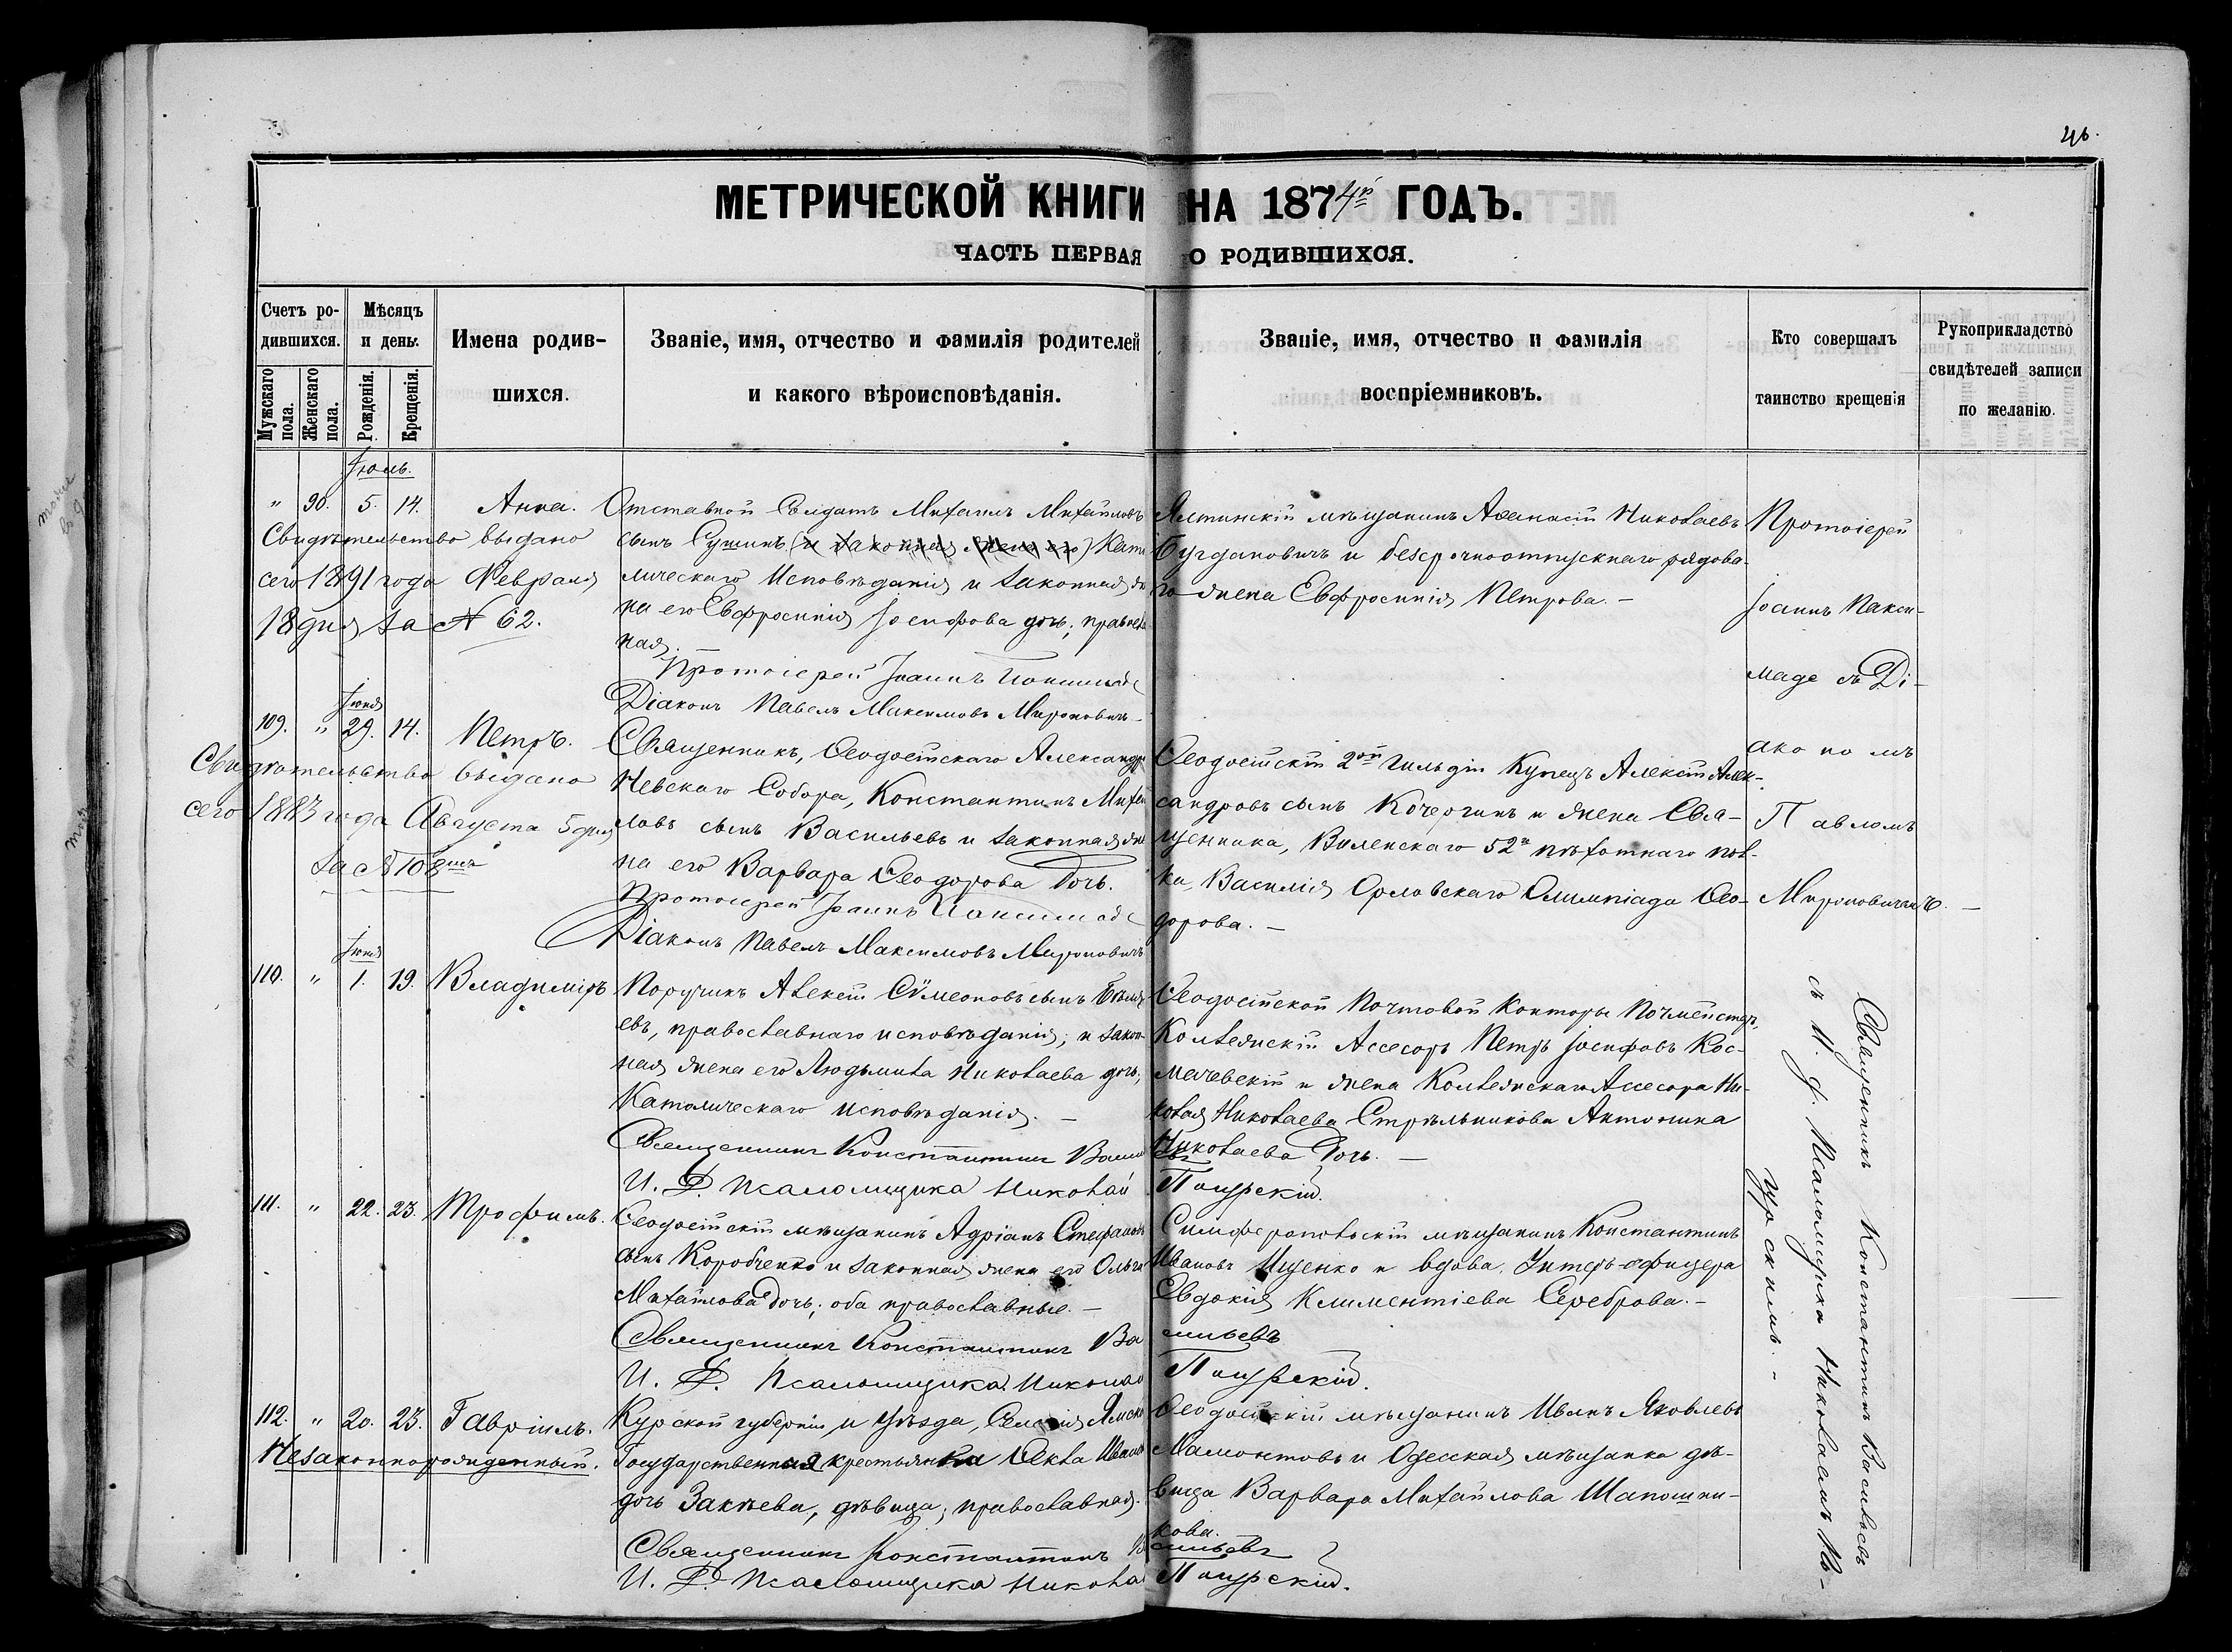 46.
МЕТРИЧЕСКОЙ КНИГИ НА 1874й ГОДЪ.
ЧАСТЬ ПЕРВАЯ О РОДИВШИХСЯ.
Счетъ ро-
дившихся.
Мужскаго пола.
Женскаго пола.
Мѣсяцъ
и день.
Рожденія.
Крещенія.
Имена родив-
шихся.
Званіе, имя, отчество и фамилія родителей
и какого вѣроисповѣданія.
Званіе, имя, отчество и фамилія
воспріемниковъ.
Кто совершалъ
таинство крещенія
Рукоприкладство
свидѣтелей записи
по желанію.
Іюль.
" 90. 5. 14. Анна.
Свидѣтельство выдано
сего 1891 года Февраля
18 дня за № 62.
Отставной Солдатъ Михаилъ Михайловъ
сынъ Сушинъ (и законная жена его) Като
лическаго Исповѣданія и законная же
на его Евфросинія Іосифова дочь; православ
ная.
Протоіерей Іоаннъ
Діаконъ Павелъ Максимовъ Мироновичъ
Ялтинскій мѣщанинъ Аѳанасій Николаевъ
Бугдановичъ и безсрочноотпускнаго рядова-
го жена Евфросинія Петрова. -
Протоіерей
Іоаннъ
маде съ Ді-
акономъ
Павломъ
Мироновичемъ. -
Іюня
109. " 29. 14. Петръ.
Свидѣтельство выдано
сего 1883 года Августа 5 дня
за № 108мъ
Священникъ, Ѳеодосійскаго Александро
Невскаго Собора, Константинъ Михай
ловъ сынъ Васильевъ и законная же
на его Варвара Ѳеодорова дочь.
Протоіерей Іоаннъ
Діаконъ Павелъ Максимовъ Мироновичъ
Ѳеодосійскій 2ой гильдіи Купецъ Алексій Алек-
сандровъ сынъ Кочергинъ и жена Свя-
щенника, Виленскаго 52го пѣхотнаго пол-
ка, Василія Орловскаго Олимпіада Ѳео-
дорова. -
Іюня
110. " 1. 19. Владиміръ
Поручикъ Алексій Сѵмеоновъ сынъ
евъ, православнаго исповѣданія; и закон-
ная жена его Людьмила Николаева дочь;
Католическаго исповѣданія. -
Священникъ Константинъ Васильевъ
И. Д. Псаломщика Николай Пащурскій.
Ѳеодосійской Почтовой Конторы Почмейстеръ,
Коллежскій Ассесоръ Петръ Іосифовъ Кос-
мачевскій и жена Коллежскаго Ассесора Ни-
колая Николаева Стрѣльникова Антонина
Николаева дочь. -
Священникъ Константинъ Васильевъ
съ И. д. Псаломщика Николаемъ Па-
щурскимъ. -
111. " 22. 23. Трофимъ.
Ѳеодосійскій мѣщанинъ Адріанъ Стефановъ
сынъ Коробченко и законная жена его Ольга
Михайлова дочь; оба православные. -
Священникъ Константинъ Васильевъ
И. Д. Псаломщика Николай Пащурскій.
Симферопольскій мѣщанинъ Константинъ
Ивановъ Ищенко и вдова, Унтеръ-офицера
Евдокія Климентіева Сереброва. -
112. " 20. 23. Гавріилъ.
Незаконнорожденный.
Курской губерніи и уѣзда,
Государственная крестьянка Ѳекла Иванов
дочь Закѣева, дѣвица; православная.
Священникъ Константинъ Васильевъ
И. Д. Псаломщика Николай Пащурскій.
Ѳеодосійскій мѣщанинъ Иванъ Яковлевъ
Мамонтовъ и Одесская мѣщанка дѣ-
вица Варвара Михайлова Шапошни-
кова.